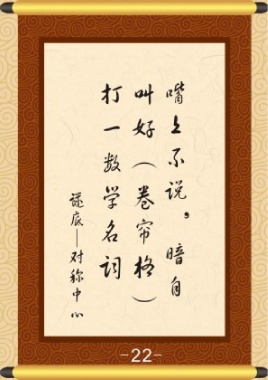 嘴上不说，暗自
叫好（卷帘格）
打一数学名词
谜底——对称中心
-22-